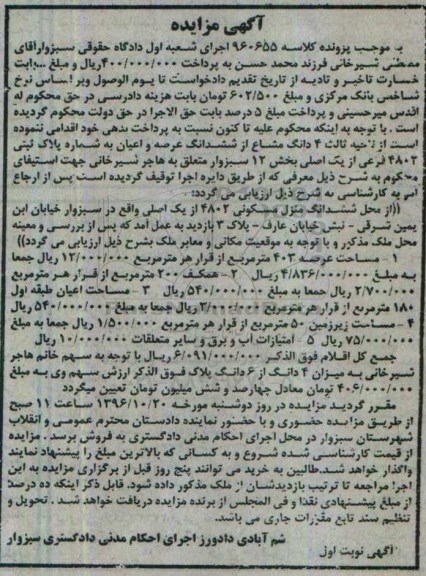 آگهی مزایده
به موجب پرونده کلاسه ۹۶۰۶۵۵ اجرای شعبه اول دادگاه حقوقی سبزوار آقای
مصطفی شیرخانی فرزند محمد حسن به پرداخت ۴۰۰/۰۰۰/۰۰۰ ریال و مبلغ بابت
خسارت تاخیر و تادیه از تاریخ تقدیم دادخواست تا یوم الوصول وبر اساس نرخ
شاخص بانک مرکزی و مبلغ ۶۰۲/۵۰۰ تومان بابت هزینه دادرسی در حق محکوم له
اقدس میرحسینی و پرداخت مبلغ ۵ درصد بابت حق الاجرا در حق دولت محکوم گردیده
است . با توجه به اینکه محکوم علیه تا کنون نسبت به پرداخت بدهی خود اقدامی ننموده
است از ناحیه ثالث ۴ دانگ مشاع از ششدانگ عرصه و اعیان به شماره پلاک ثبتی
۴۸۰۲ فرعی از یک اصلی بخش ۱۲ سبزوار متعلق به هاجر شیرخانی جهت استیفای
محکوم به شرح ذیل معرفی که از طریق دایره اجرا توقیف گردیده است پس از ارجاع
امر به کارشناسی به شرح ذیل ارزیابی می گردد:
((از محل ششدانگ منزل مسکونی ۴۸۰۲ از یک اصلی واقع در سبزوار خیابان ابن
یمین شرقی - نبش خیابان عارف - پلاک ۳ بازدید به عمل آمد که پس از بررسی و معینه
محل ملک مذکور و با توجه به موقعیت مکانی و معابر ملک بشرح ذیل ارزیابی می گردد))
۱ - مساحت عرصه ۴۰۳ مترمربع از قرار هر مترمربع ۱۲/۰۰۰/۰۰۰ ریال جمعا
به مبلغ ۴/۸۳۶/۰۰۰/۰۰۰ ریال ۲ - همکف ۲۰۰ مترمربع از قرار هر مترمربع
۲/۷۰۰/۰۰۰ ریال جمعا به مبلغ ۵۴۰/۰۰۰/۰۰۰ ریال ۳ - مساحت اعیان طبقه اول
۱۸۰ مترمربع از قرار هر مترمربع ۳/۰۰۰/۰۰۰ ریال جمعا به مبلغ ۵۴۰/۰۰۰/۰۰۰ ریال
۴ - مساحت زیرزمین ۵۰ مترمربع از قرار هر مترمربع ۱/۵۰۰/۰۰۰ ریال جمعا به مبلغ
۷۵/۰۰۰/۰۰۰ ریال ۵ - امتیازات آب و برق و سایر متعلقات ۱۰۰/۰۰۰/۰۰۰ ریال
جمع کل اقلام فوق الذکر ۶/۰۹۱/۰۰۰/۰۰۰ ریال با توجه به سهم خانم هاجر
شیرخانی به میزان ۴ دانگ از ۶ دانگ پلاک فوق الذکر ارزش سهم وی به مبلغ
۴۰۶/۰۰۰/۰۰۰ تومان معادل چهارصد و شش میلیون تومان تعیین میگردد
مقرر گردید مزایده در روز دوشنبه مورخه ۱۳۹۶/۱۰/۲۰ ساعت ۱۱ صبح
از طریق مزایده حضوری و با حضور نماینده دادستان محترم عمومی و انقلاب
شهرستان سبزوار در محل اجرای احکام مدنی دادگستری به فروش برسد . مزایده
از قیمت کارشناسی شده شروع و به کسانی که بالاترین مبلغ را پیشنهاد نمایند
واگذار خواهد شد.طالبین به خرید می توانند پنج روز قبل از برگزاری مزایده به این
اجرا مراجعه تا ترتیب بازدیدشان از ملک مذکور داده شود. قابل ذکر اینکه ده درصد
از مبلغ پیشنهادی نقدا و فی المجلس از برنده مزایده دریافت خواهد شد . تحویل و
تنظیم سند تابع مقررات جاری می باشد.
شم آبادی دادورز اجرای احکام مدنی دادگستری سبزوار
آگهی نوبت اول